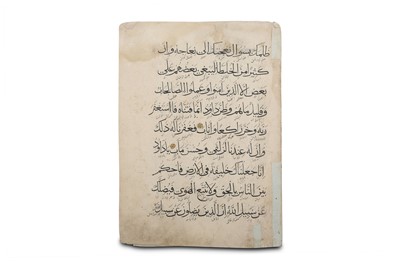 ظلمك بسؤال نعجتك الى نعاجه وان
كثيرا من الخلطا ليبغي بعضهم على
بعض الا الذين امنوا وعملوا الصالحات
وقليل ما هم وظن داود انما فتناه فاستغفر
ربه وخر راكعا واناب فغفرنا له ذلك
وان له عندنا لزلفى وحسن ماب يا داود
انا جعلناك خليفة في الارض فاحكم
بين الناس بالحق ولا تتبع الهوى فيضلك
عن سبيل الله ان الذين يضلون عن سبيل